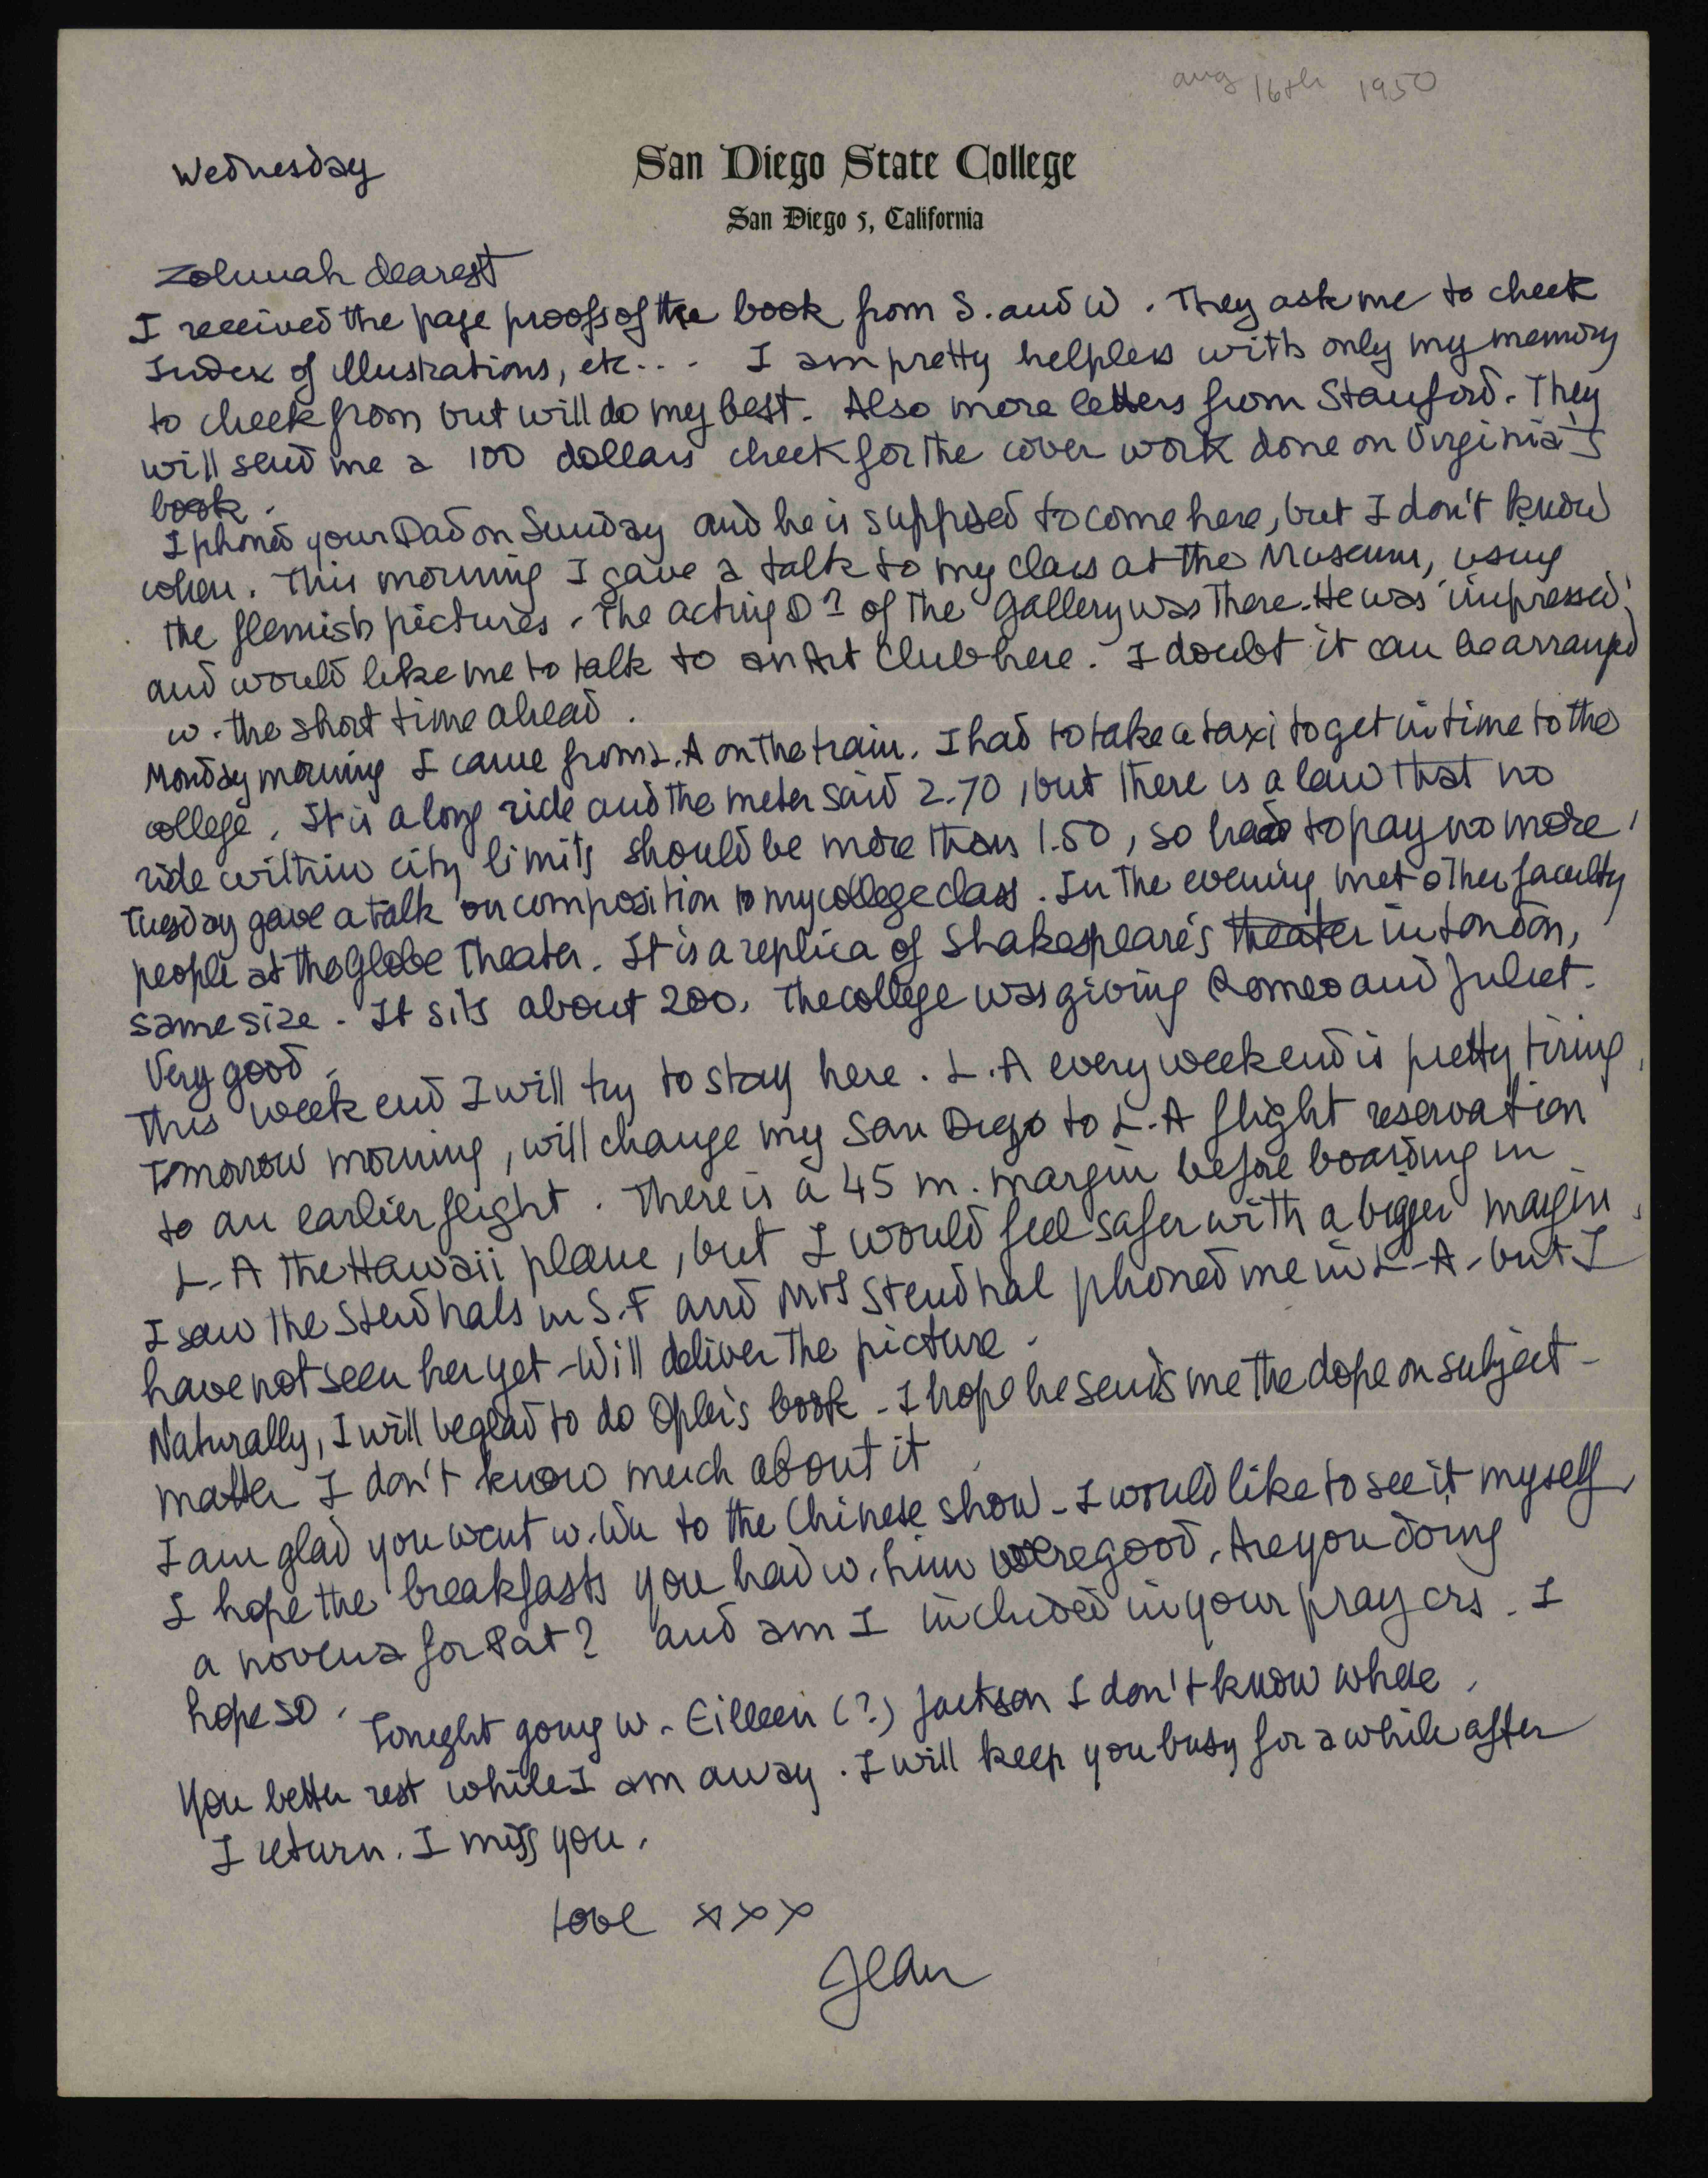 aug 16th 1950
Wednesday
San Diego State College
San Diego 5, California
Zohmah dearest
I received the page proofs of the book from S. and W. They ask me to check
Index of illustrations, etc... I am pretty helpless with only my memory
to check from but will do my best. Also more letters from Stanford. They
will send me a 100 dollars check for the cover work done on Virginia's
book.
I phoned your Dad on Sunday and he is supposed to come here, but I don't know
when. This morning I gave a talk to my class at the Museum, using
the flemish pictures. The acting D? of the Gallery was there. He was 'impressed'
and would like me to talk to an Art Club here. I doubt it can be arranged
w. the short time ahead.
Monday morning I came from L.A on the train. I had to take a taxi to get in time to the
college. It is a long ride and the meter said 2.70, but there is a law that no
ride within city limits should be more than 1.50, so had to pay no more.
Tuesday gave a talk on composition to my college class. In the evening met other faculty
people at the Globe Theater. It is a replica of Shakespeare's theater in London,
same size. It sits about 200. The college was giving Romeo and Juliet.
Very good.
This week end I will try to stay here. L.A every week end is pretty tiring.
Tomorrow morning, will change my San Diego to L.A flight reservation
to an earlier flight. There is a 45 m. margin before boarding in
L.A the Hawaii plane, but I would feel safer with a bigger margin.
I saw the Stendhals in S.F and Mrs Stendhal phoned me in L-A-but I
have not seen her yet-Will deliver the picture.
Naturally, I will be glad to do Opler's book-I hope he sends me the dope on subject-
matter I don't know much about it.
I am glad you went w. Wu to the Chinese show-I would like to see it myself.
I hope the breakfasts you had w. him were good. Are you doing
a novena for Pat? and am I included in your prayers. I
hope so. Tonight going w. Eilleen (?) Jackson I don't know where.
You better rest while I am away. I will keep you busy for a while after
I return. I miss you.
Love xxx
Jean